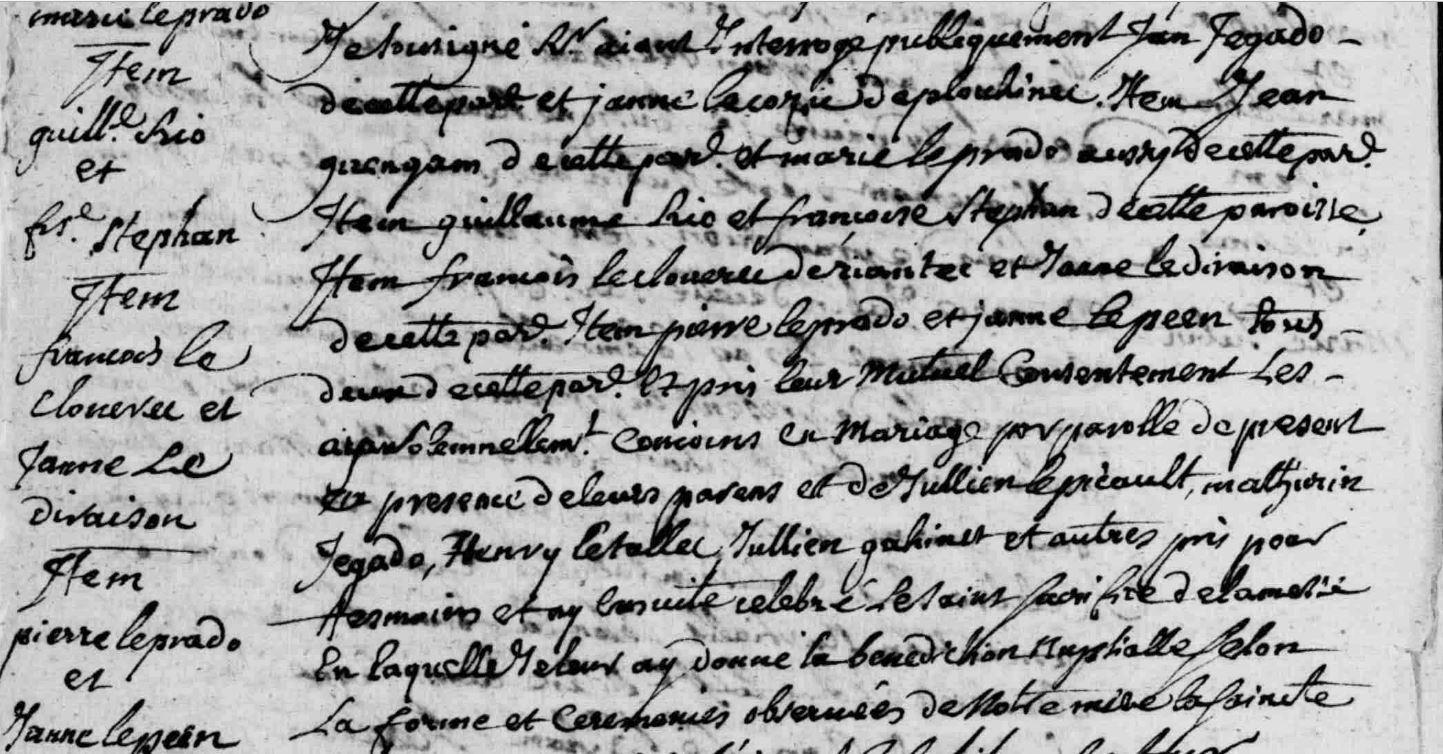 marie le prado
Item
guill.e Rio
et
fr.se Stephan
Item
francois le
Cloueree et
Janne Le
divaison
Item
pierre le prado
et
Janne le peen
Je sousigné Rr aiant Interrogé publiquement Jan Jegado -
de cette part et janne le cozic de plouhinec. Item Jean
guengam de cette par.e et marie le prado aussy de cette par.e
Item guillaume Rio et françoise Stephan de cette paroisse
Item francois le cloueree de riantec et Janne le divaison
de cette par.e Item pierre le prado et janne le peen tous
deux de cette par.e Et pris leur Mutuel Consentement Les -
ai par solemnellem.t conioins en Mariage par parolle de present
presence de leurs parens et de Jullien le picault, mathurin
Jegado, Henry le tallec, Jullien gahinet et autres pris pour
tesmoins et ay ensuite celebré Le saint sacrifice de la messe
En laquelle Je leur ay donné la benediction Nuptialle selon
La forme et Ceremonies observées de Notre mere la saincte